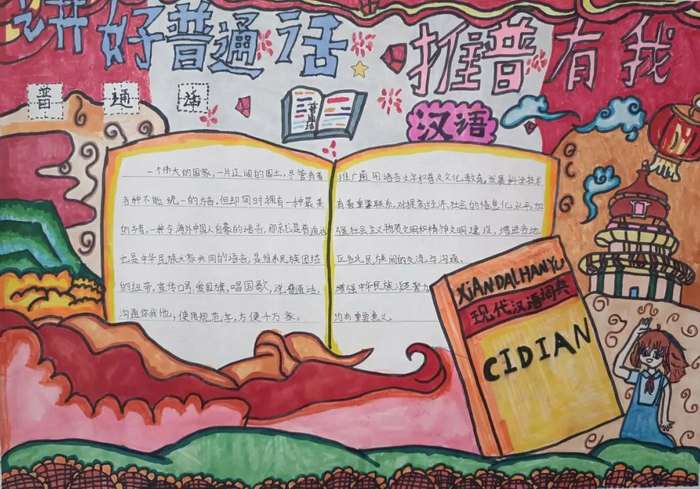 讲好普通话 推普有我
普通话
讲普通话
汉语
一个伟大的国家,一片正阔的国土,尽管有着
各种不能统一的方语,但却同时拥有一种最美
的方语,一种令海外中国人自豪的语言,那就是普通话
也是中华民族大都共同的语言,是维系民族团结
的纽带,宣传口号:爱国旗,唱国歌,说普通话,
沟通你我他,使用规范字,方便千万家。
推广通用语言文字和喜文化教育,发展科学技术
有着重要联系,对提高经济、社会的信息化水平,加
强社会主义物质文明和精神文明建设,增进各地
区各民族间的交流与沟通。
增强中华民族凝聚力
均有重要意义。
XIANDAIHANYU
现代汉语词典
CIDIAN